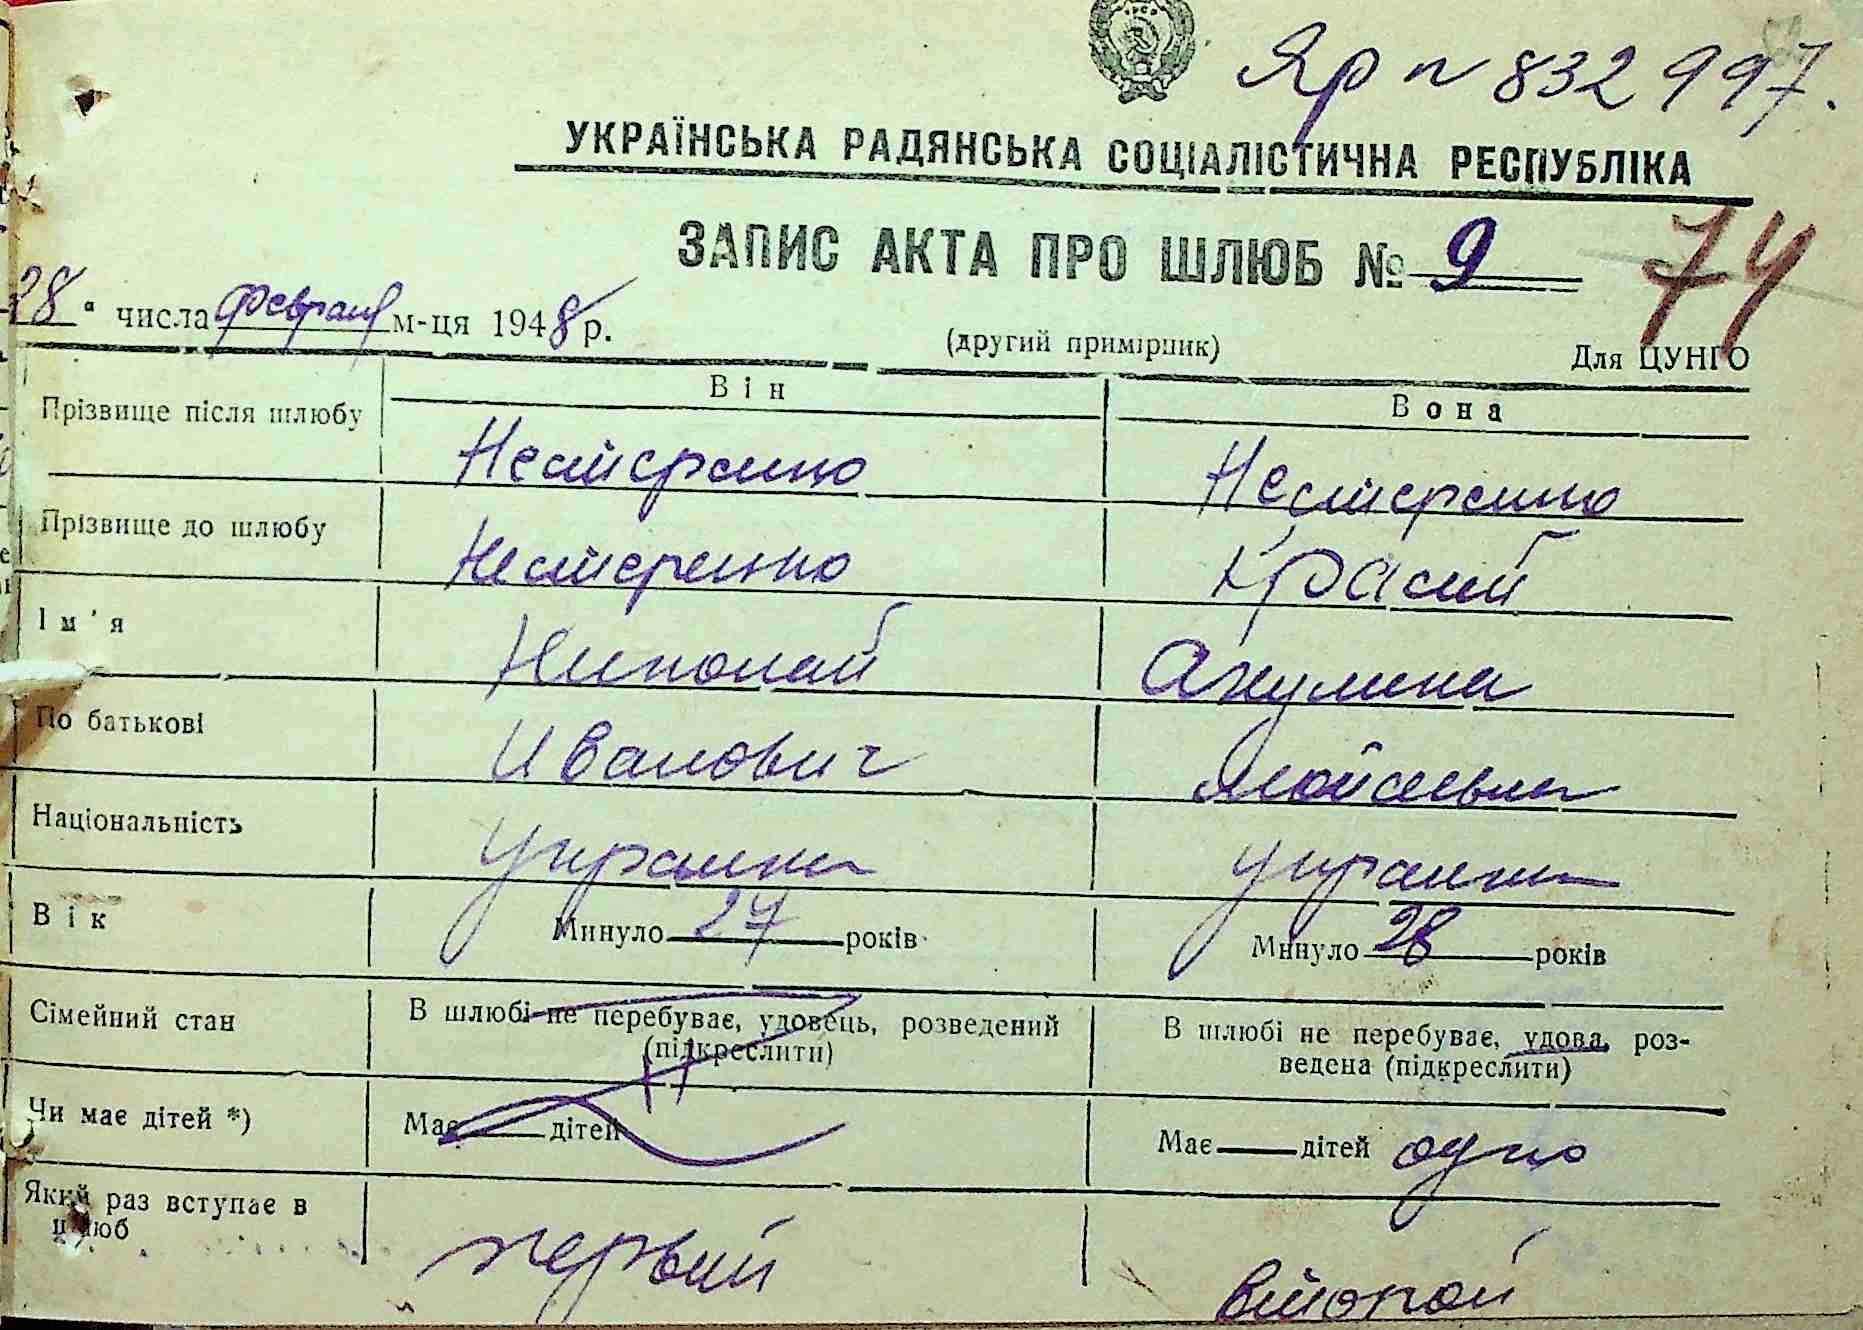 Яр п 832997.
УКРАЇНСЬКА РАДЯНСЬКА СОЦІАЛІСТИЧНА РЕСПУБЛІКА
ЗАПИС АКТА ПРО ШЛЮБ № 9 74
28 " числа февраля м-ця 1948 р.
(другий примірник) Для ЦУНГО
Він Вона
Прізвище після шлюбу Нестеренко Нестеренко
Прізвище до шлюбу Нестеренко Красий
Ім'я Николай Акулина
По батькові Иванович Мойсеевна
Національність Украинец Украинка
Вік Минуло 27 років Минуло 28 років
Сімейний стан В шлюбі не перебуває, удовець, розведений В шлюбі не перебуває, удова, роз-
(підкреслити) ведена (підкреслити)
Чи має дітей *) Має дітей Має дітей одно
Який раз вступає в
шлюб первый второй